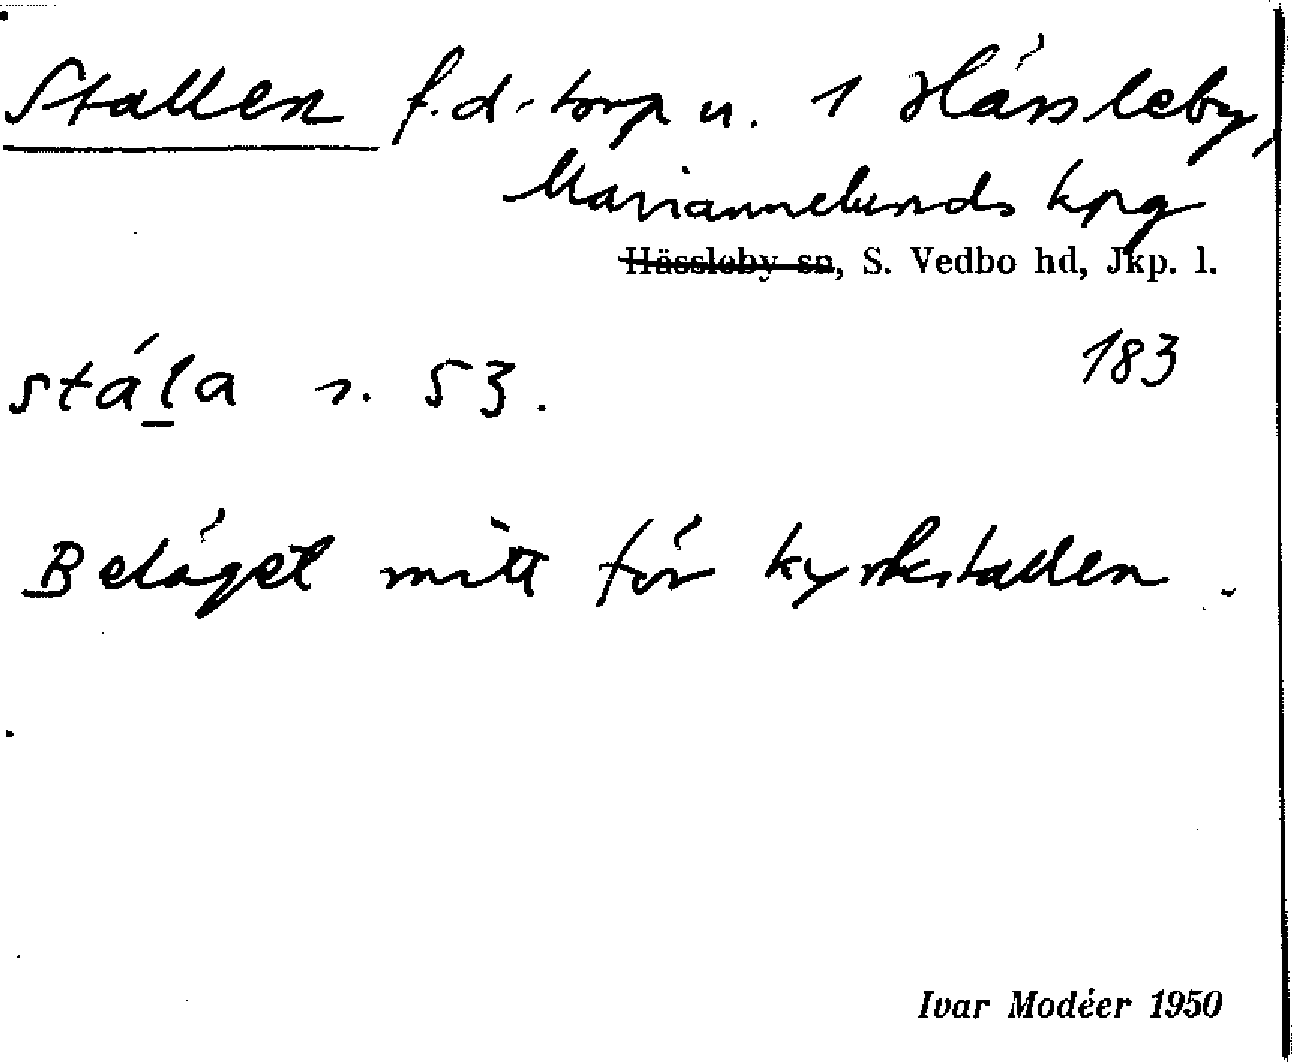 Stallen f.d. torp u. 1 Hässleby,
Mariannelunds kpg
Hässleby sn, S. Vedbo hd, Jkp. l.
183
stála s. 53.
Beläget mitt för kyrkstallen.
Ivar Modéer 1950